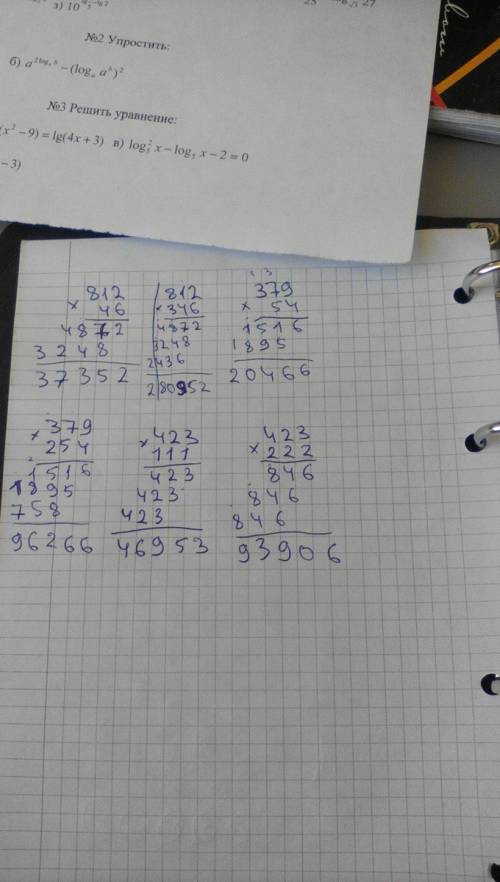 з) 10
№2 Упростить:
б) a^{2log_a b} − (log_a a^b)^2
№3 Решить уравнение:
(x² − 9) = lg(4x + 3) в) log₅² x − log₅ x − 2 = 0
− 3)
812
× 46
4872
3248
37352
812
× 346
4872
3248
2436
280952
379
× 54
1516
1895
20466
× 379
254
1516
1895
758
96266
× 423
111
423
423
423
46953
423
× 222
846
846
846
93906